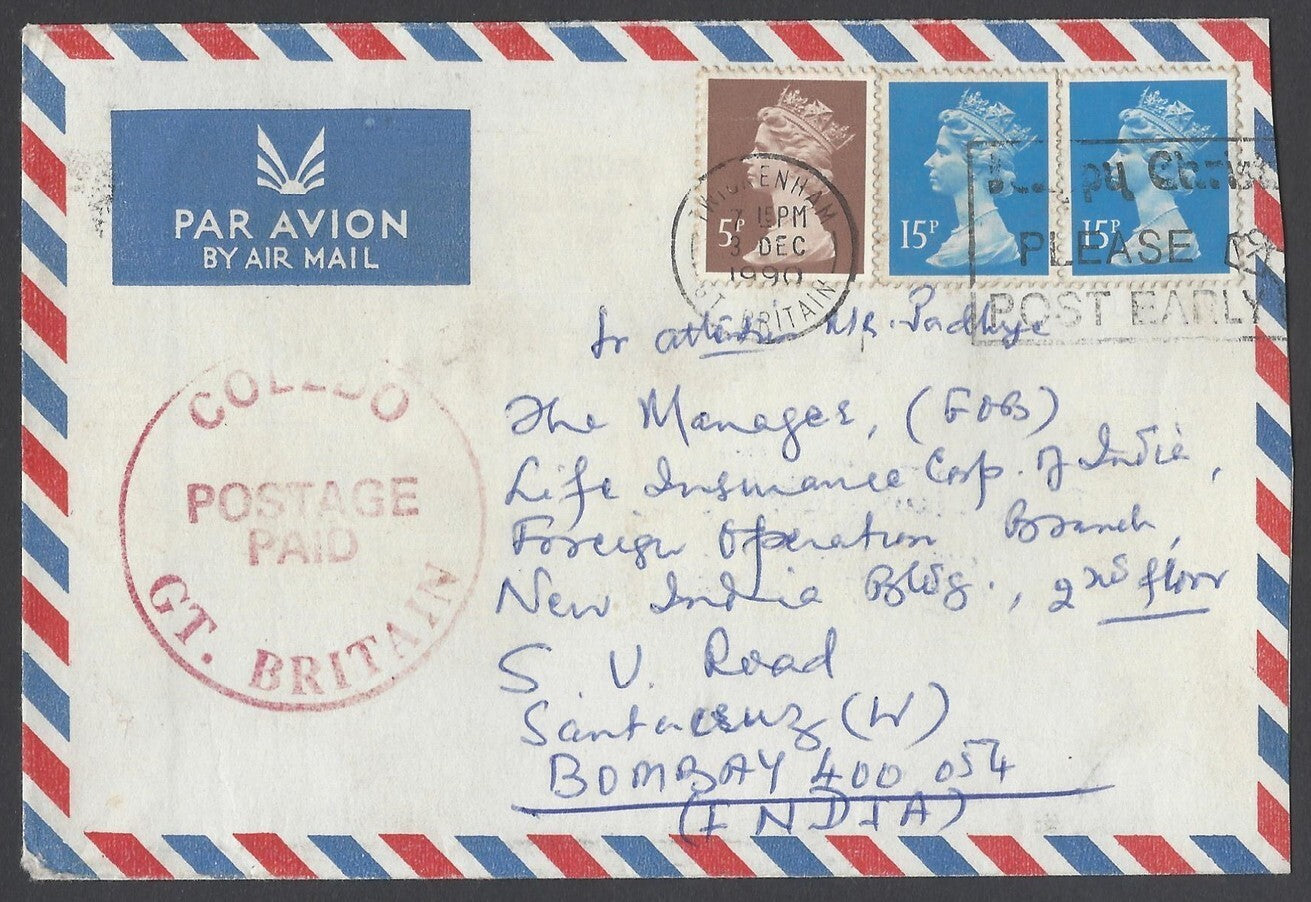 PAR AVION
BY AIR MAIL
5P
15P
15P
TWICKENHAM
7 15PM
3 DEC
1990
GT. BRITAIN
PLEASE
POST EARLY
Mr. Padhye
The Manager, (FOB)
Life Insurance Corp. of India,
Foreign Operation Branch,
New India Bldg., 2nd floor
S. V. Road
Santacruz (W)
BOMBAY 400 054
(INDIA)
POSTAGE
PAID
GT. BRITAIN